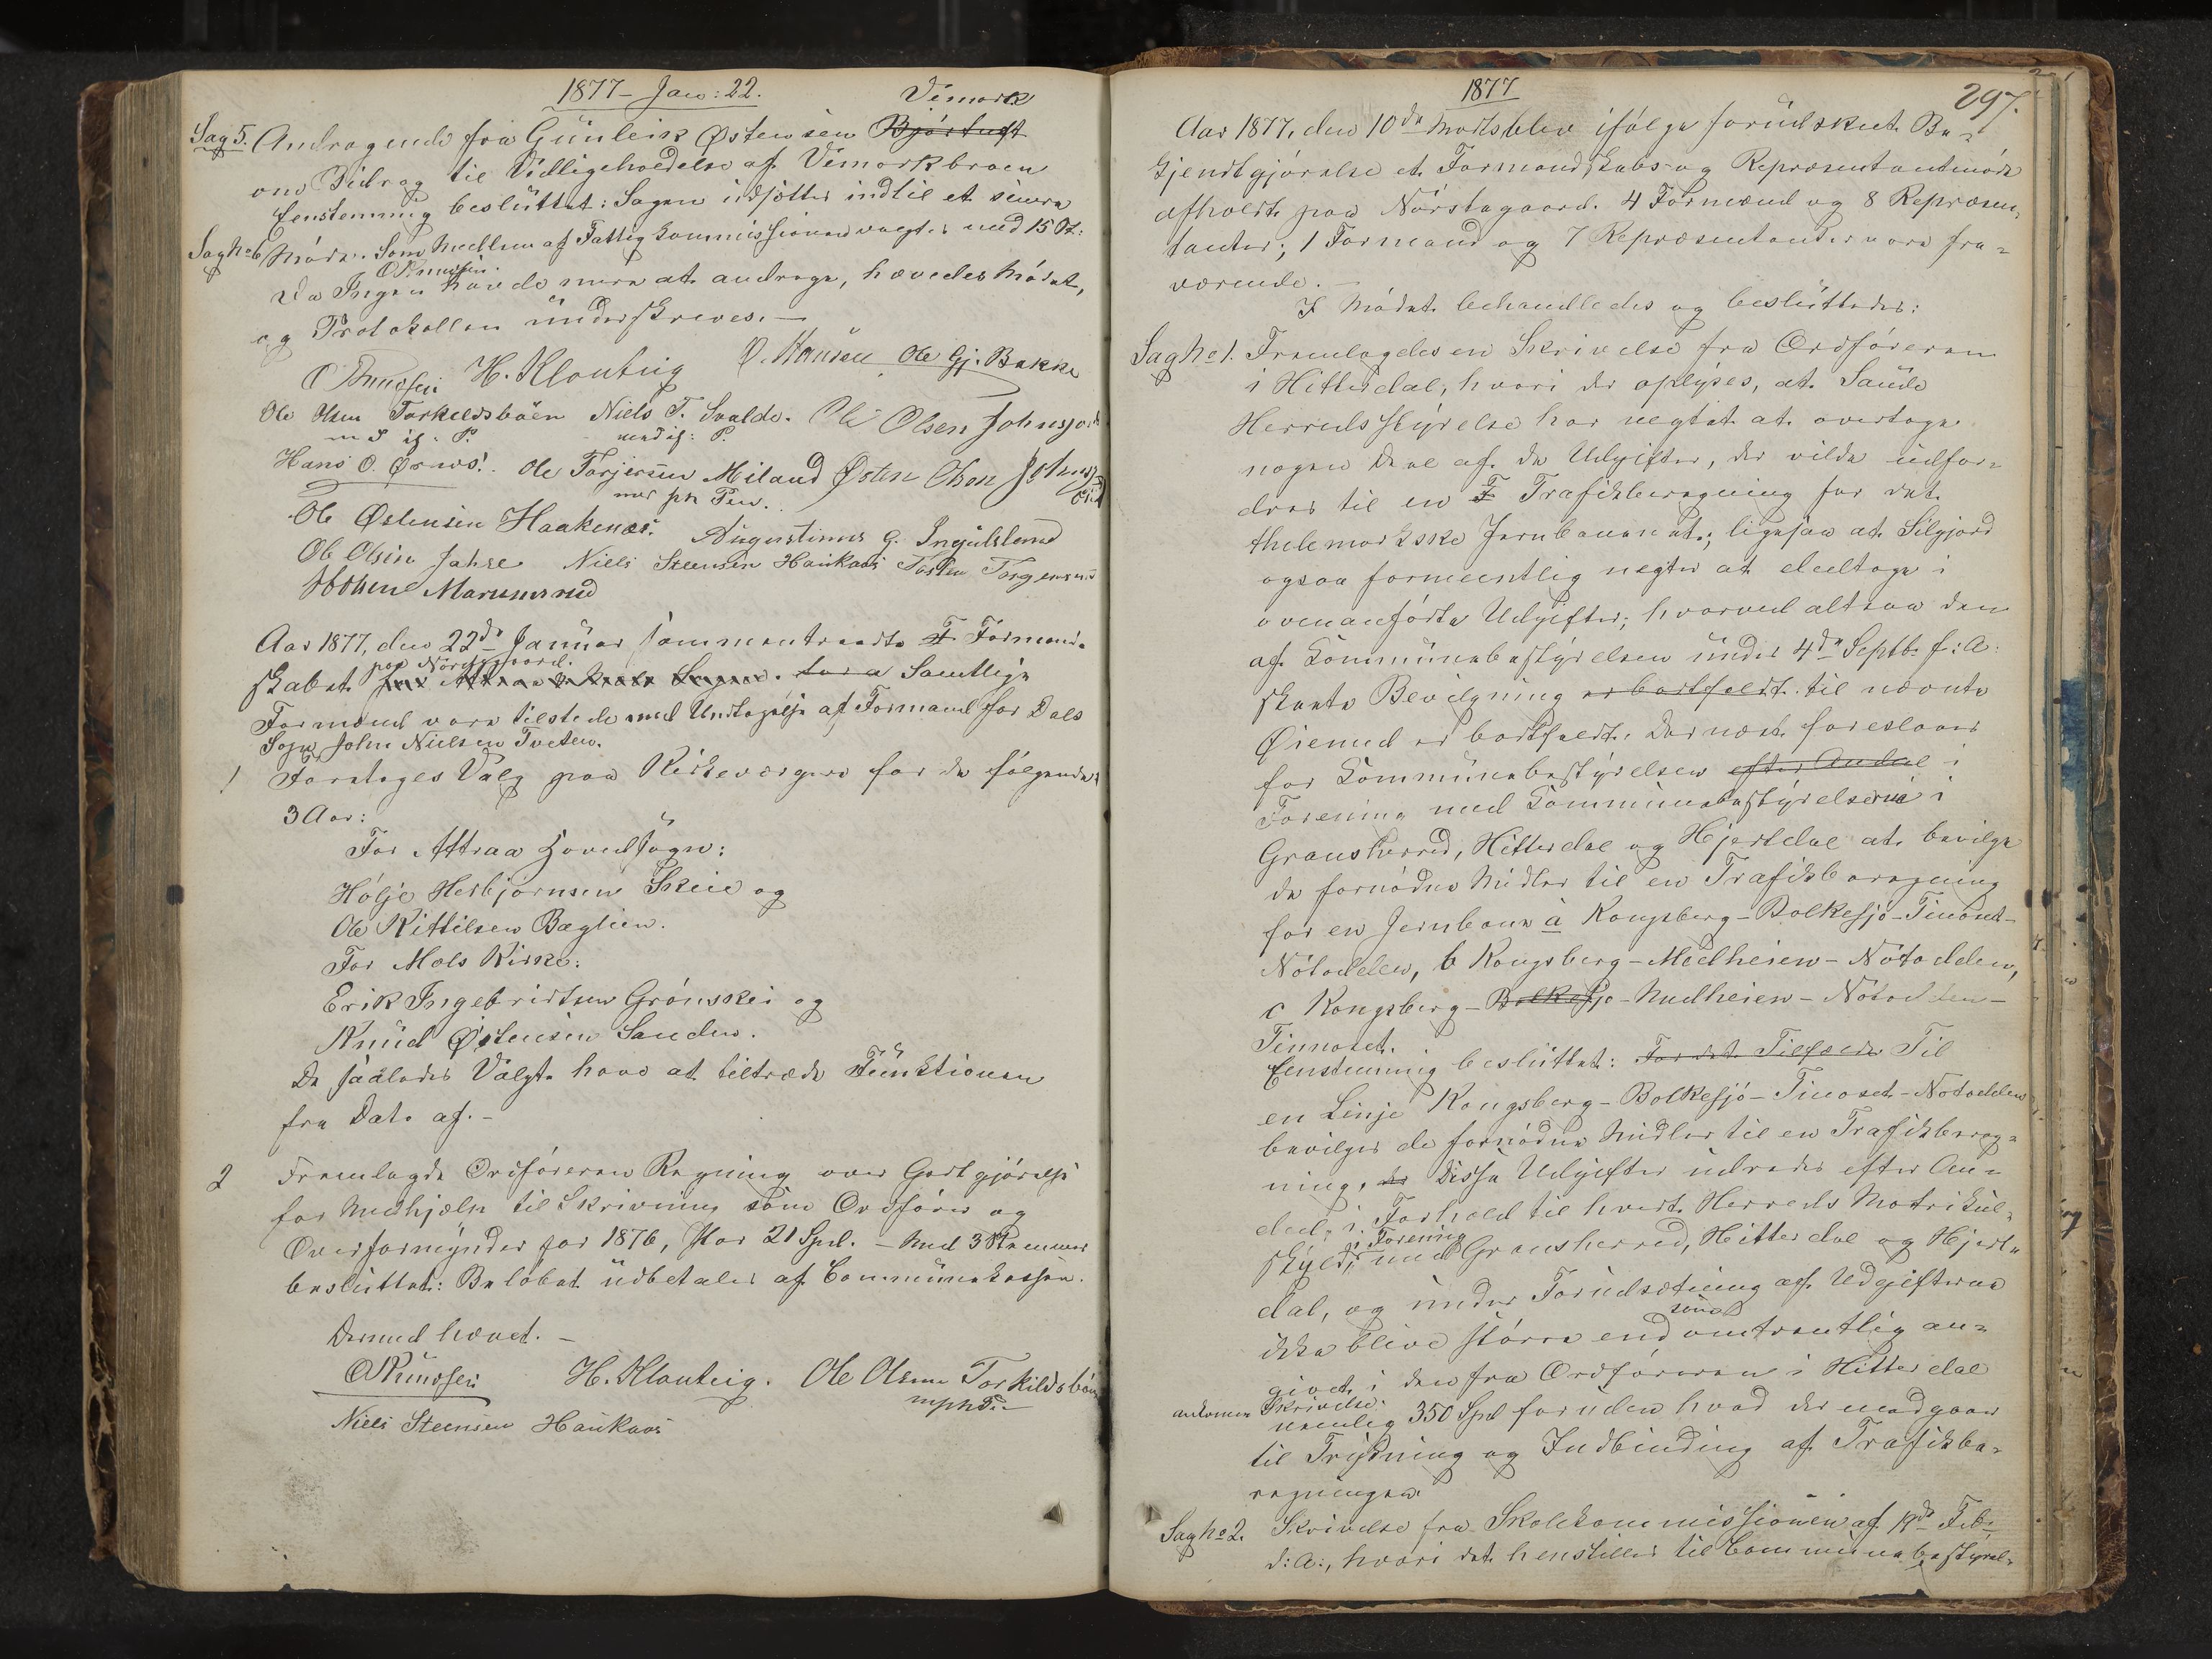 1877 - Jan: 22.
Vemork
Sag 5. Andragende fra Gunleik Østensen Bjørtuft
om Bidrag til Vedligeholdelse af Vemorkbroen
Eenstemmig besluttet: Sagen udsættes indtil et senere
Sag No 6 Møde. Som Medlem af Fattigkommissionen valgtes med 15 St:
O Knudsen.
Da Ingen havde mere at andrage, hævedes Mødet,
og Protokollen underskreves. —
O Knudsen H. Klonteig O. Hansen Ole Gj. Bakke
Ole Olsen Torkeldsbøen Niels T. Svalde. Ole Olsen Johnsjord
m i. P. med i: P.
Hans O. Ørnes. Ole Torjersen Miland Østen Olsen
med paa Pen.
Ole Østensen Haakenæs. Augustinus G. Ingulsland
Ole Olsen Jahre Niels Steensen Haukaas Torsten Torgersrud
Marumsrud
Aar 1877, den 22de Januar sammentraadte F Formand-
paa Nørstegaard.
skabet for Attraa Sogne. for a Samtlige
Formænd vare tilstede med Undtagelse af Formand for Dals
Sogn John Nielsen Tveten.
1 Foretoges Valg paa Kirkeværgere for de følgende
3 Aar:
For Attraa Hovedsogn:
Hølje Herbjørnsen Skeie og
Ole Kittilsen Bæglien.
For Mæls Kirke:
Erik Ingebrigtsen Grønskei og
Knud Østensen Sanden.
De saaledes Valgte have at tiltræde Funktionen
fra Dato af. -
2 Fremlagde Ordføreren Regning over Godtgjørelse
for Medhjælp til Skrivning som Ordfører og
Overformynder for 1876, stor 21 Spd. - Med 3 Stemmer
besluttet: Beløbet udbetales af Communekassen.
Dermed hævet. -
O Knudsen H. Klonteig. Ole Olsen Torkildsbøen
mphP. -
Niels Steensen Haukaas
1877
297.
Aar 1877, den 10de Marts blev ifølge forudskeet Be-
kjendtgjørelse et Formandskabs- og Repræsentantmøde
afholdt paa Nørstegaard. 4 Formænd og 8 Repræsen-
tanter; 1 Formand og 7 Repræsentanter vare fra-
værende. —
I Mødet behandledes og besluttedes:
Sag No 1. Fremlagdes en Skrivelse fra Ordføreren
i Hitterdal, hvori der oplyses, at Saude
Herredsstyrelse har negtet at overtage
nogen Deel af de Udgifter, der vilde udfor-
dres til en F Trafikberegning for det
thelemarkske Jernbaneanl.; ligesaa at Silgjord
ogsaa formeentlig negter at deeltage i
ovenanførte Udgifter; hvorved altsaa den
af Kommunebestyrelsen under 4de Septb. f: A:
skeete Bevilgning er bortfaldt til nævnte
Øiemed er bortfaldt. Dernæst foreslaaes
for Kommunebestyrelsen efter Andeel i
Forening med Kommunebestyrelserne i
Gransherred, Hitterdal og Hjertdal at bevilge
de fornødne Midler til en Trafikberegning
for en Jernbane a Kongsberg - Bolkesjø - Tinoset -
Notodden, b Kongsberg - Medheien - Notodden,
c Kongsberg - Bolkesjø - Medheien - Notodden -
Tinnoset.
Eenstemmig besluttet: For det Tilfælde Til
en Linje Kongsberg - Bolkesjø - Tinoset - Notodden
bevilges de fornødne Midler til en Trafikbereg-
ning, de Disse Udgifter udredes efter An-
deel i Forhold til hvert Herreds Matrikul-
i Forening
skyld, med Gransherred, Hitterdal og Hjert-
dal, og under Forudsætning af Udgifterne
som
ikke blive større end omtrentlig an-
givet i den fra Ordføreren i Hitterdal
ankomne Skrivelse.
nemlig 350 Spd foruden hvad der medgaar
til Trykning og Indbinding af Trafikbe-
regningen.
Sag No 2. Skrivelse fra Skolekommissionen af 19de Feb.
d: A:, hvori det henstilles til Communebestyrel-